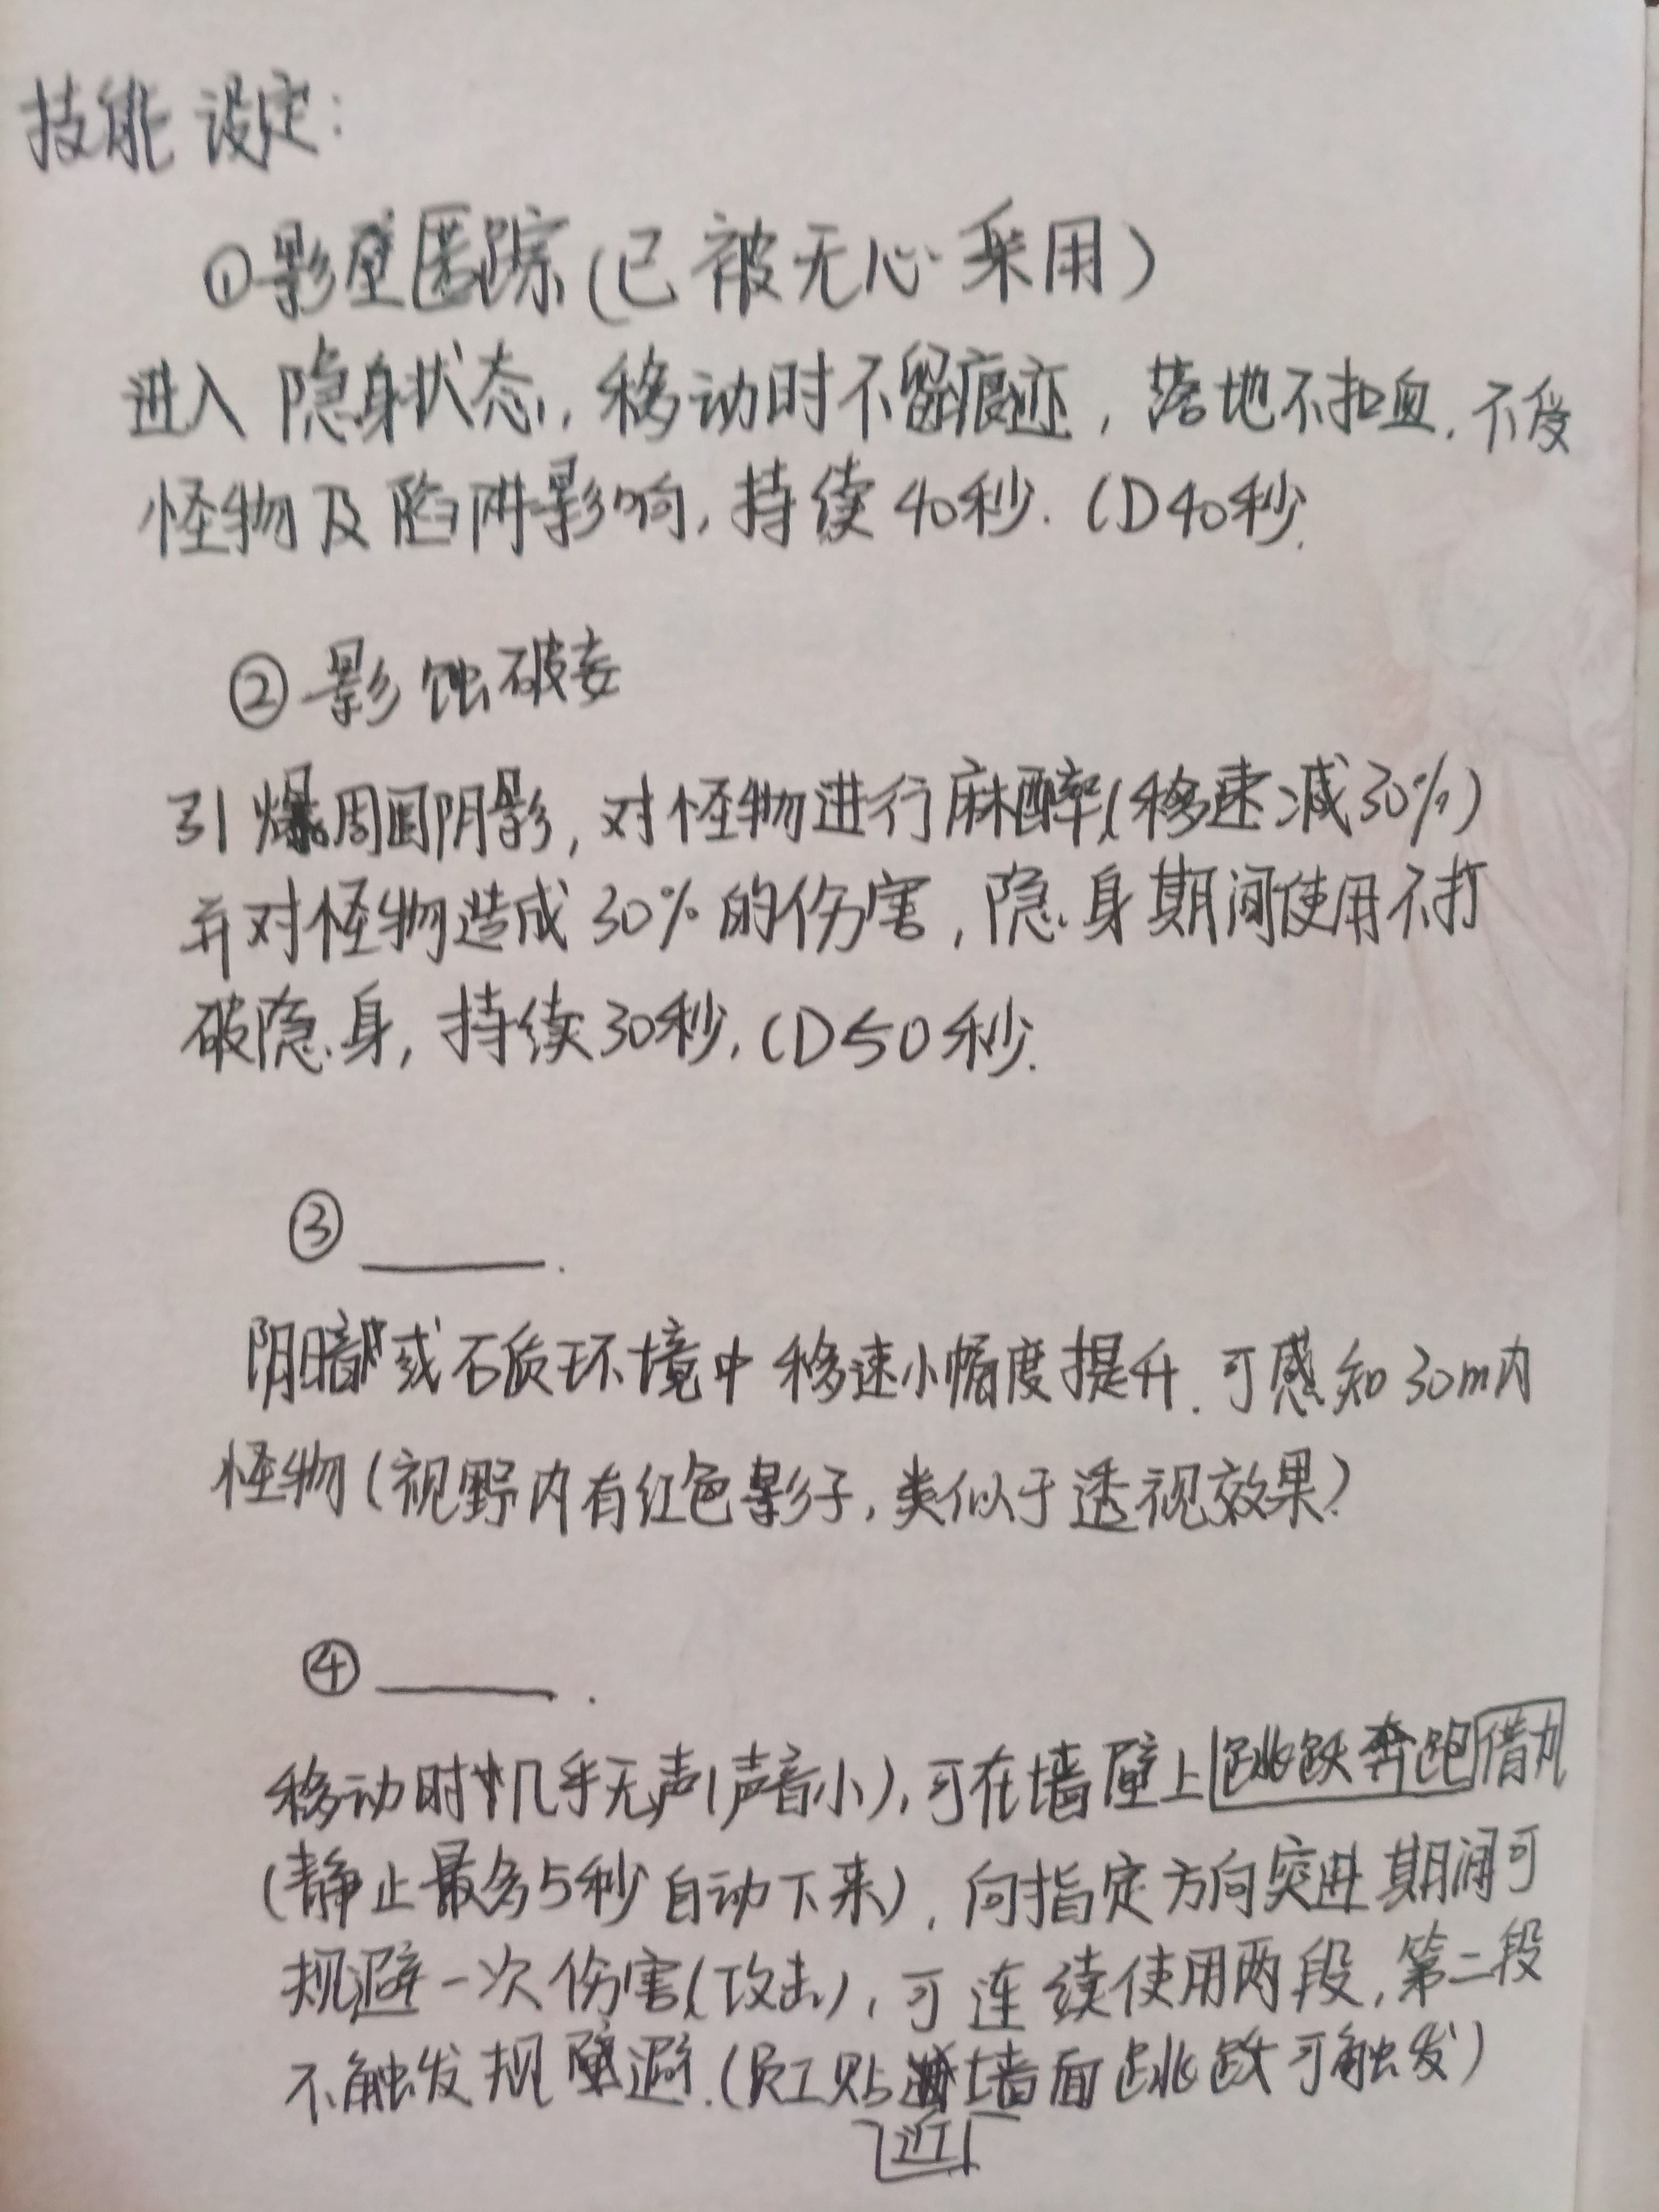 技能设定:
①影壁匿踪(已被无心采用)
进入隐身状态,移动时不留痕迹,落地不扣血.不受
怪物及陷阱影响,持续40秒.CD40秒.
②影蚀破妄
引爆周围阴影,对怪物进行麻醉(移速减30%)
并对怪物造成30%的伤害,隐身期间使用不打
破隐身,持续30秒.CD50秒.
③______.
阴暗或石质环境中移速小幅度提升.可感知30m内
怪物(视野内有红色影子,类似于透视效果)
④______.
移动时几乎无声(声音小),可在墙壁上跳跃奔跑借力
(静止最多5秒自动下来),向指定方向突进期间可
规避一次伤害(攻击),可连续使用两段,第二段
不触发规避.(员工贴墙面跳跃可触发)
近